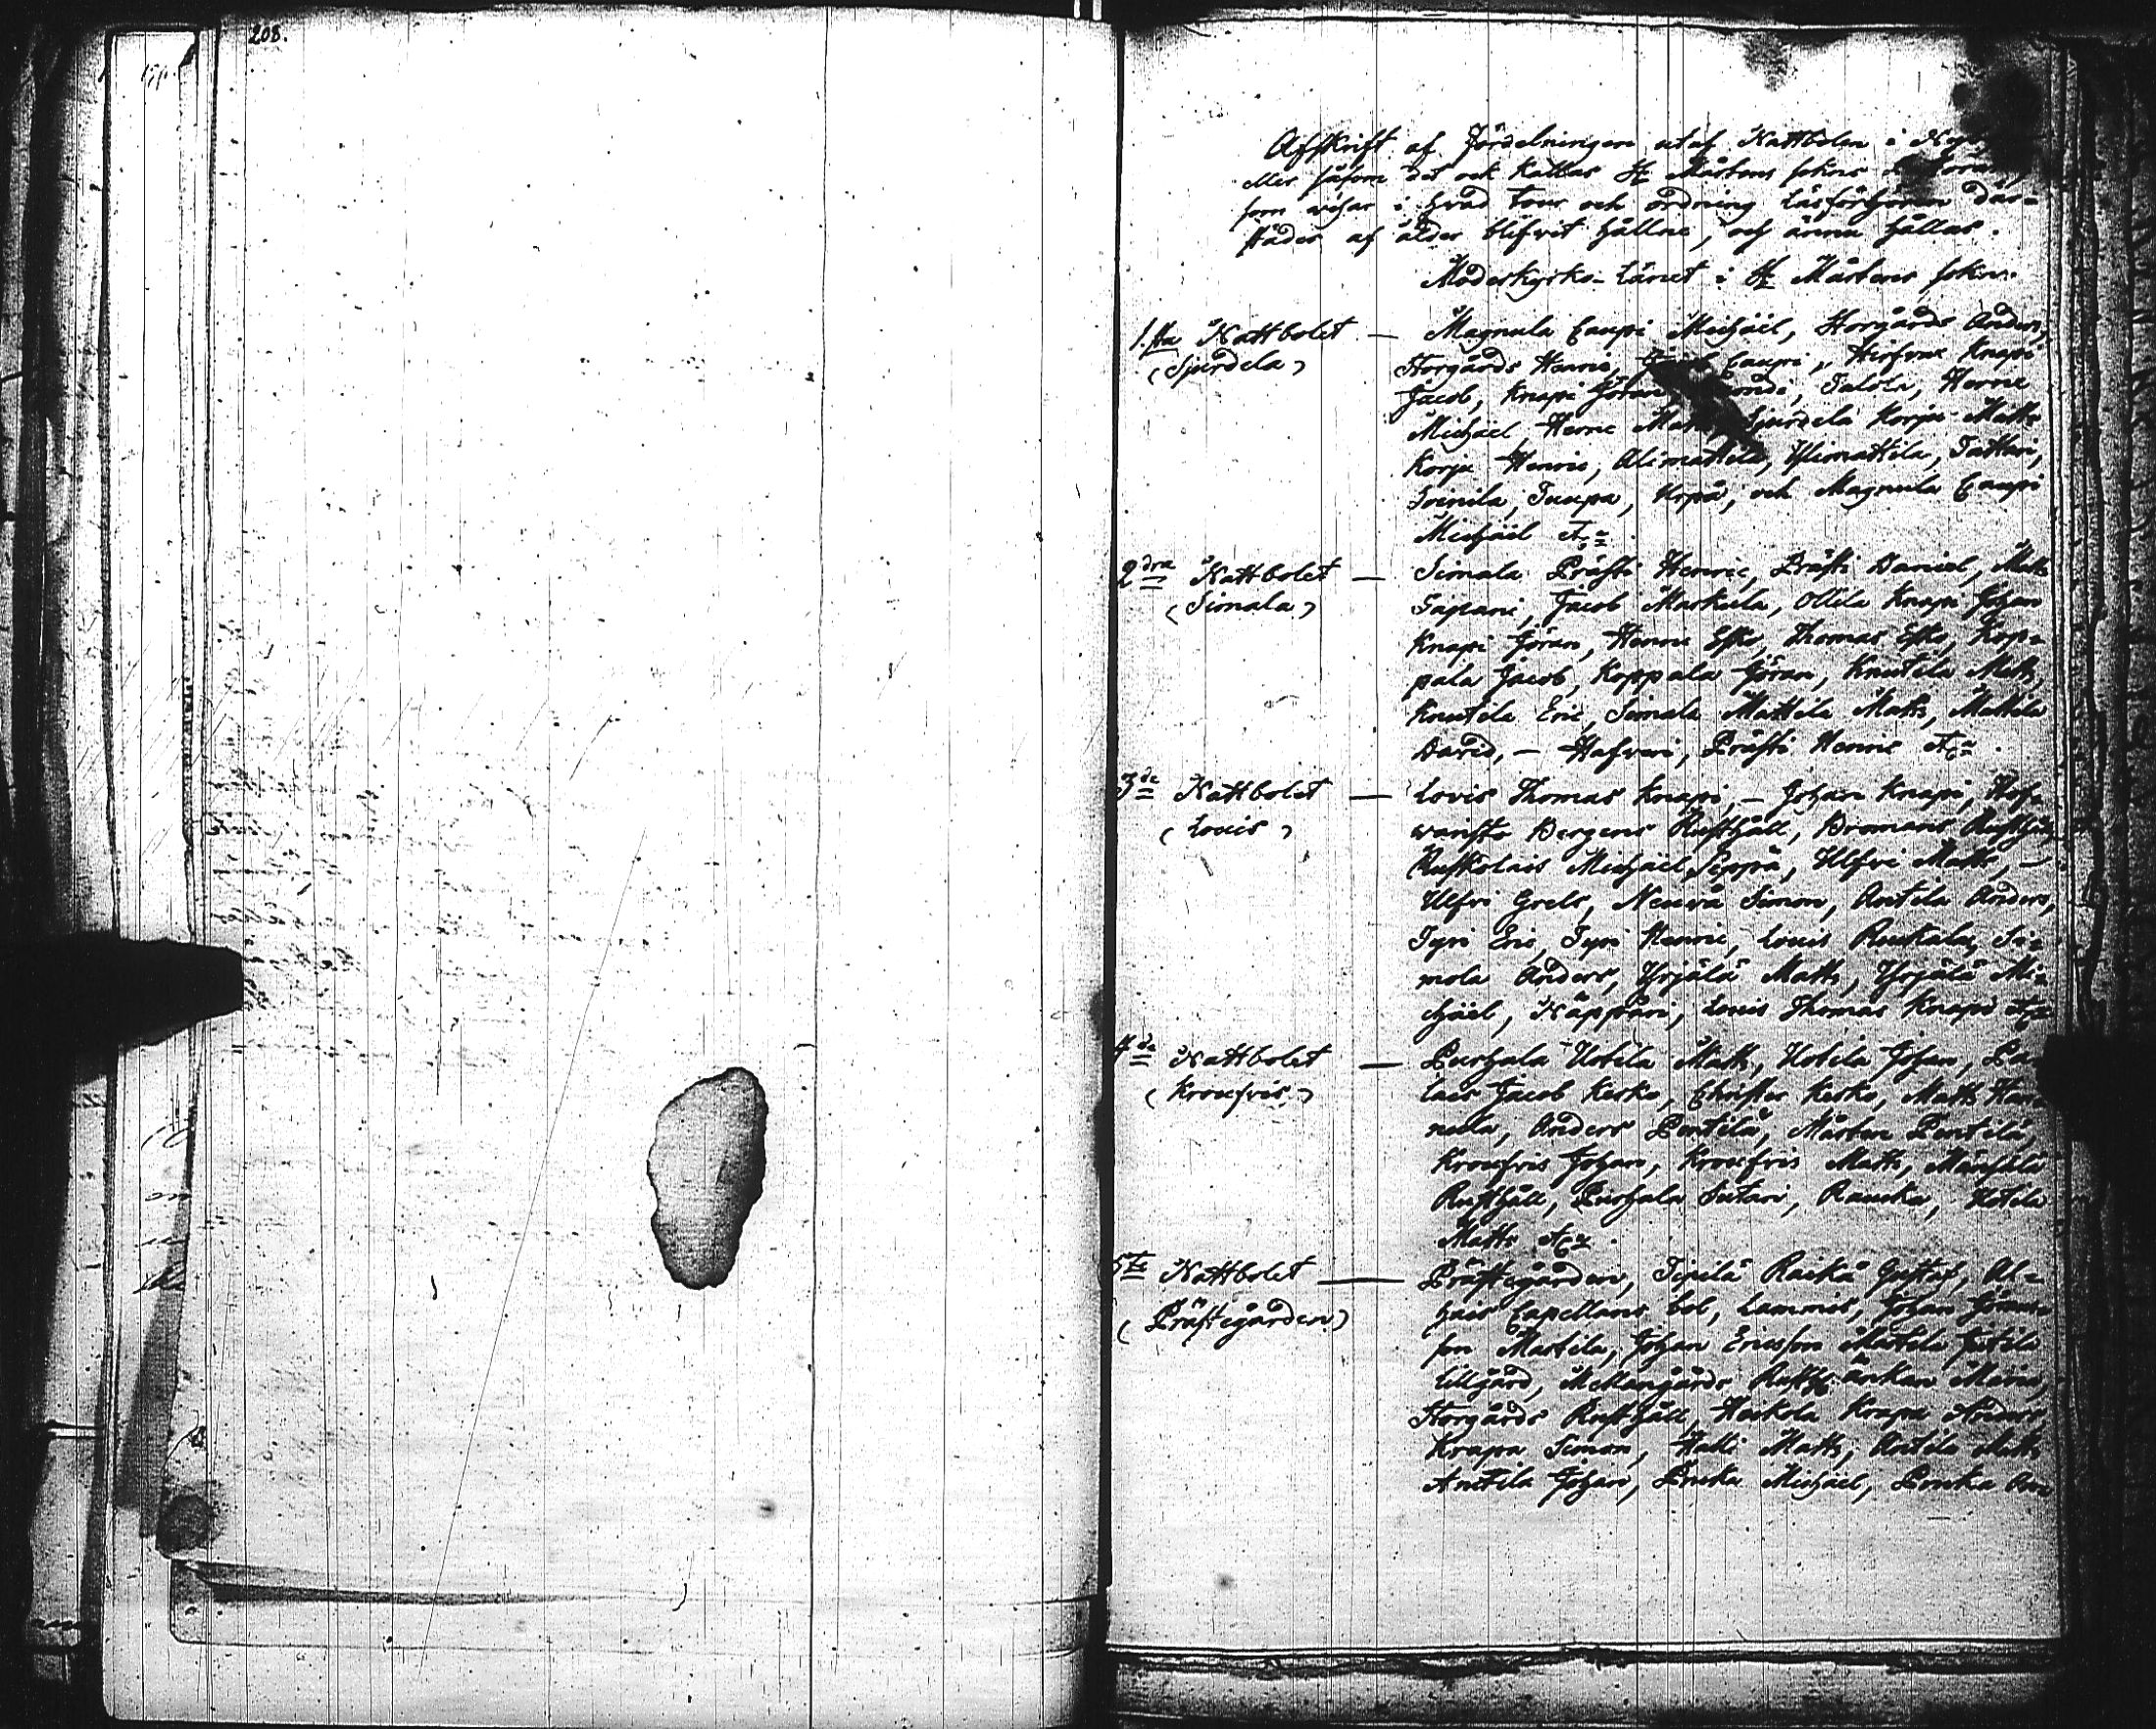 208.
Afskrift af Fördelningen utaf Nattbolen i
eller såsom det ock kallas St Mårtens sokns
som wisar i hvad tour och ordning Läsförhören där-
städes af ålder blifvit hållne, och ännu hållas.
Moderkyrko-Länet i St Mårtens sokn.
1.sta Nattbolet — Magnula Caupi Michäel, Storgårds Anders,
(Sjurdela) Storgårds Henric, Caupi, Hirfvne Knapi
Jacob, Knapi Göran, Talola, Herne
Michäel, Herne Matts, Sjurdela Korpi Matts
Korpi Henric, Alimattila, Ylimattila, Tattari,
Svenila, Tuupa, Urpå, och Magnula Caupi
Michäel etc.
2dra Nattbolet — Simala Prästi Henric, Prästi Daniel, Matts
(Simala) Tapani, Jacob Markula, Ollila Knapi Johan
Knapi Göran, Henric Esko, Thomas Esko, Kop-
pala Jacob, Koppala Göran, Knutila Matts,
Knutila Eric, Simala Mattila Matts, Mattila
David, — Hafveri, Prästi Henric etc.
3de Nattbolet — Lovis Thomas Knapi, — Johan Knapi, Hof-
(Lovis) Bergens Rusthåll, Bromans Rusthåll,
Ruskolais Michäel Seppä, Ulfvi Matts, —
Ulfvi Grels, Neuvå Simon, Antila Anders,
Tyri Eric, Tyri Henric, Louis Ruukala, Si-
mola Anders, Yrjälä Matts, Yrjälä Mi-
chäel, Näppäri, Louis Thomas Knapi etc.
4de Nattbolet — Purhala Uotila Matts, Uotila Johan, Pa-
(Kroufvis) lais Jacob Kesko, Christer Kesko, Matts Han-
nula, Anders Pentilä, Mårten Pentilä,
Kroufvis Johan, Kroufvis Matts, Mänsälä
Rusthåll, Purhala Sutari, Rauska, Uotila
Matts etc.
5te Nattbolet — Prästegården, Tepilä Raikå Gustaf, Al-
(Prästegården) hais Capellans bol, Lammis, Johan Görans-
son Martila, Johan Ericsson Martila Jutila
Lillgård, Mellangårds Rusth. änkan Maria,
Storgårds Rusthåll, Haskola Krapu Anders,
Krapu Simon, Halli Matts, Antila Matts
Antila Johan, Pruka Michäel, Pruka An-